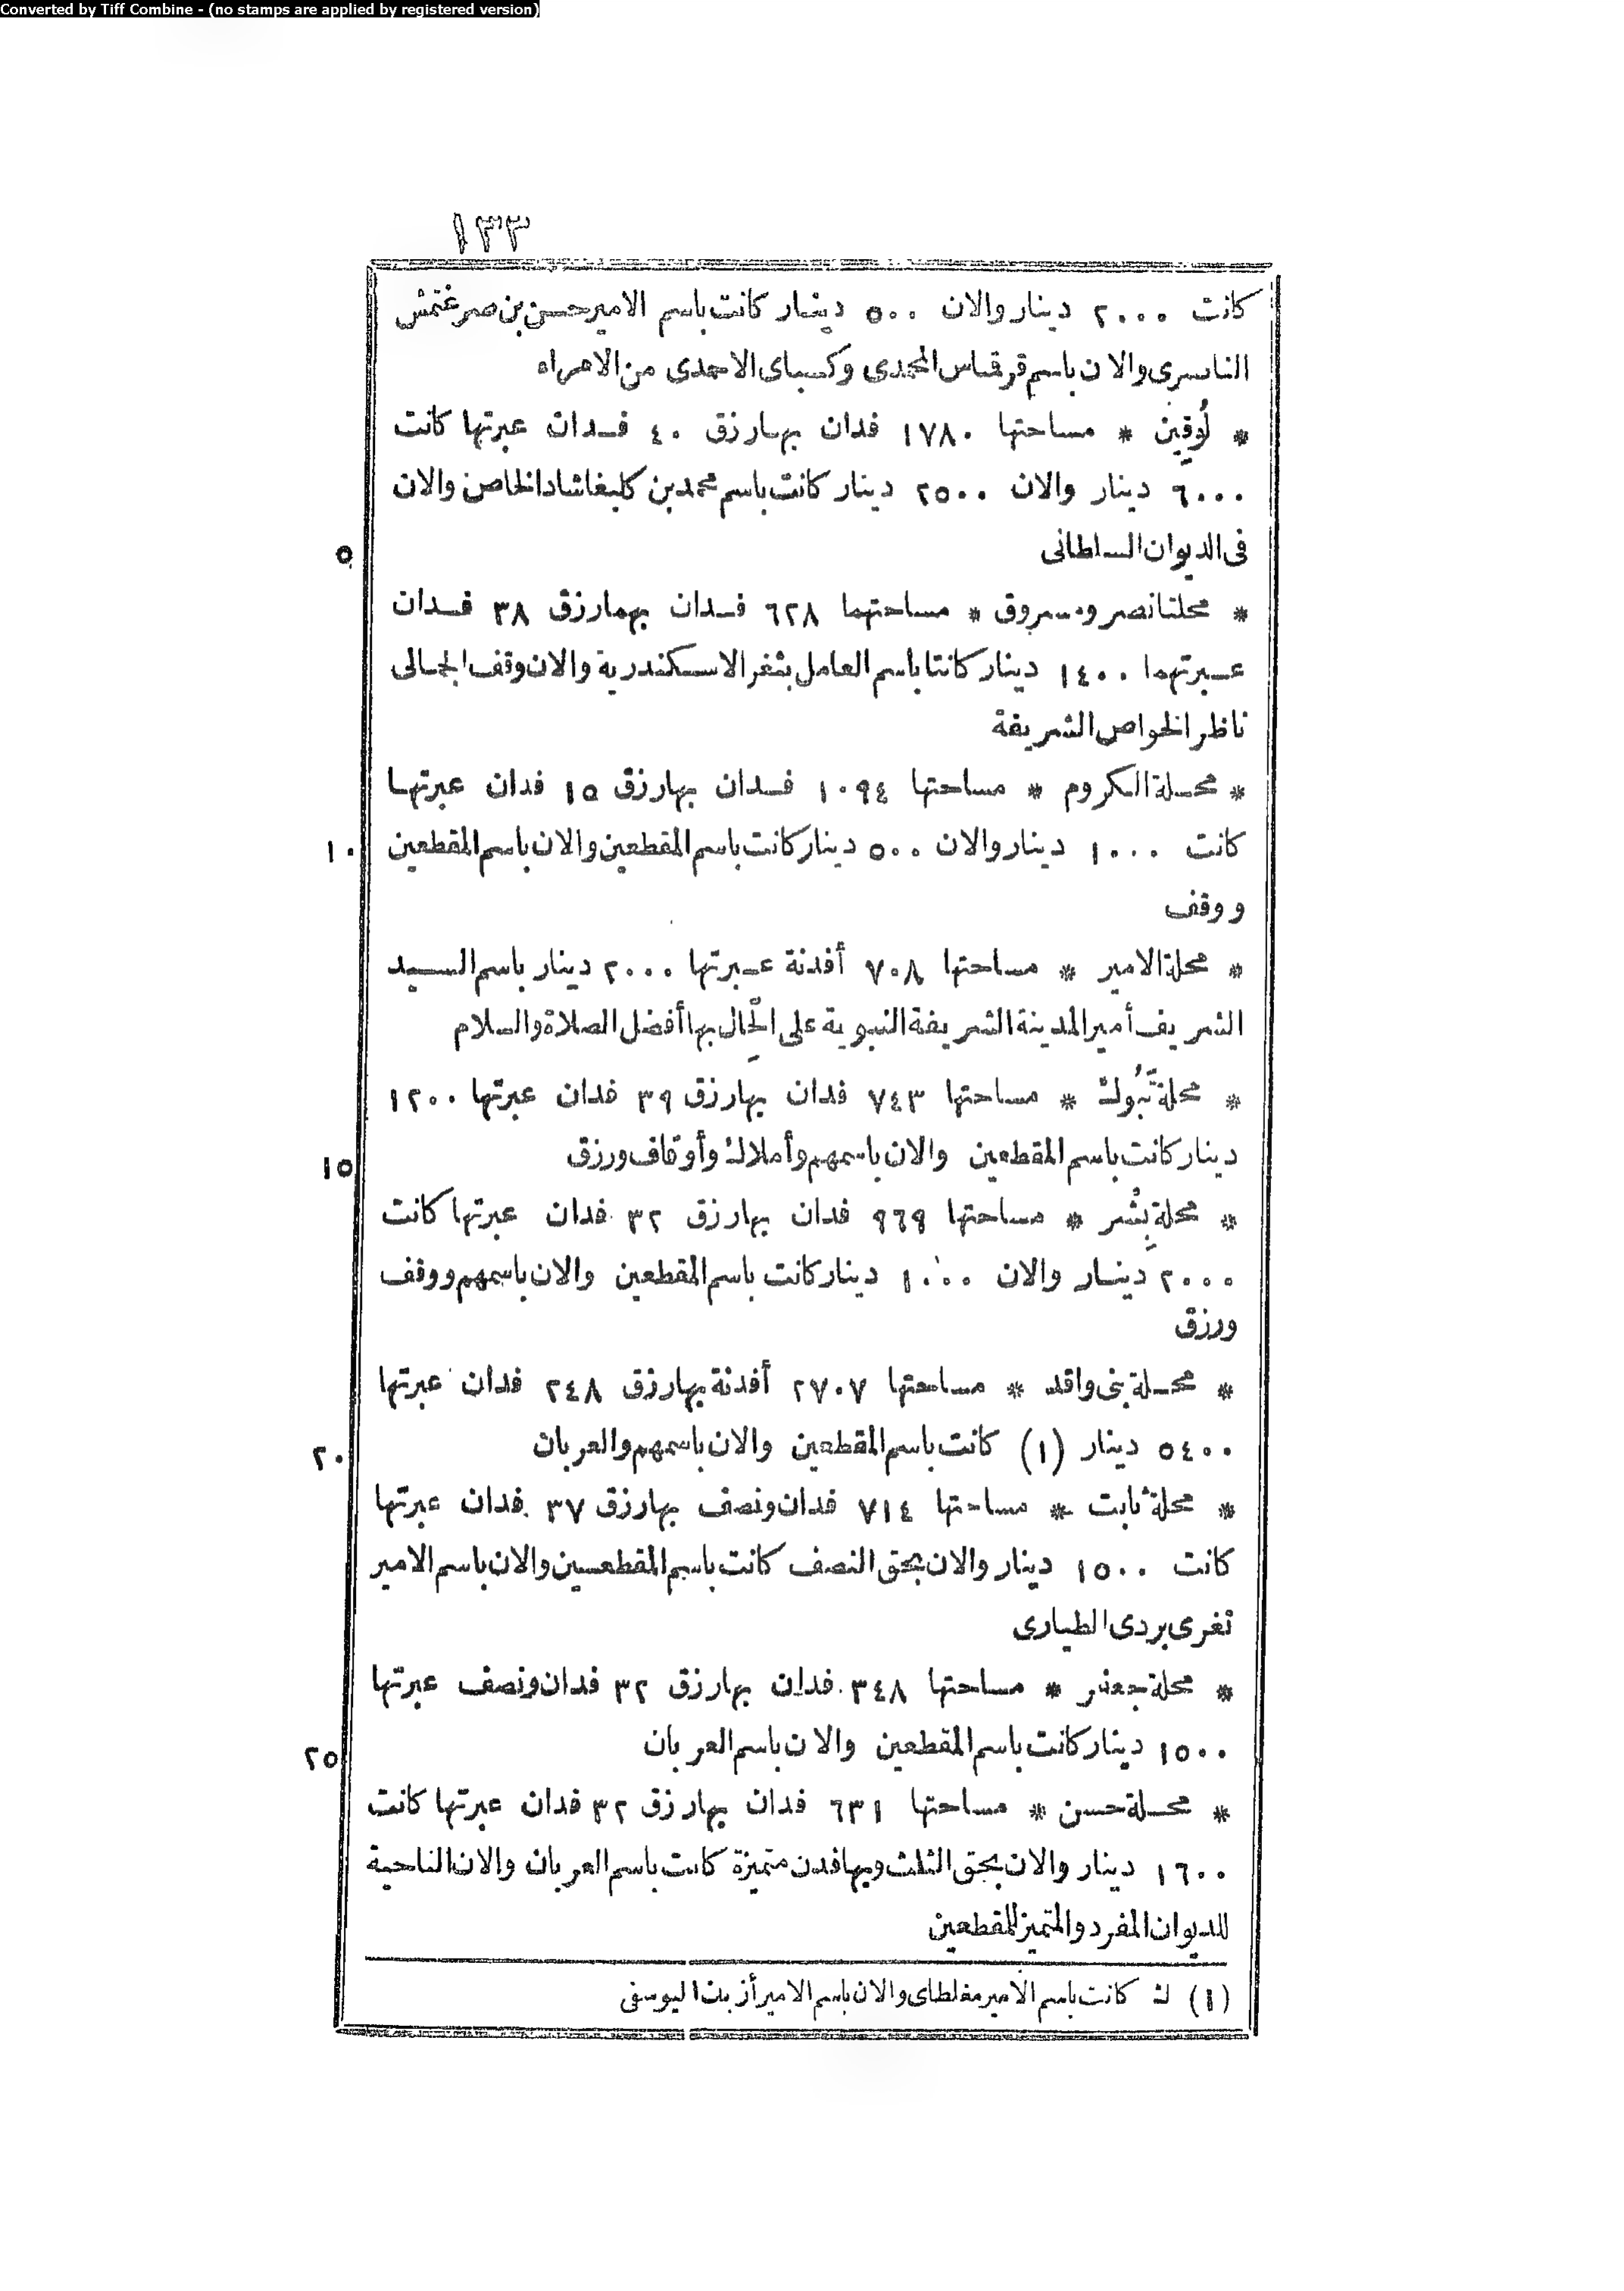 Converted by Tiff Combine - (no stamps are applied by registered version)
١٣٣
كانت ٢٠٠٠ دينار والان ٥٠٠ دينار كانت باسم الامير حسن بن صرغتمش
الناصرى والان باسم قرقماس المحمدى وكسباى الاحمدى من الامراء
* لُوقِين * مساحتها ١٧٨٠ فدان بها رزق ٤٠ فدان عبرتها كانت
٦٠٠٠ دينار والان ٢٥٠٠ دينار كانت باسم محمد بن كلبغا شاد الخاص والان
فى الديوان السلطانى
٥
* محلتا نصر ومسروق * مساحتهما ٦٢٨ فدان بهما رزق ٣٨ فدان
عبرتهما ١٤٠٠ دينار كانتا باسم العامل بثغر الاسكندرية والان وقف الجمالى
ناظر الخواص الشريفة
* محلة الكروم * مساحتها ١٠٩٤ فدان بها رزق ١٥ فدان عبرتها
كانت ١٠٠٠ دينار والان ٥٠٠ دينار كانت باسم المقطعين والان باسم المقطعين
١٠
ووقف
* محلة الامير * مساحتها ٧٠٨ أفدنة عبرتها ٢٠٠٠ دينار باسم السيد
الشريف أمير المدينة الشريفة النبوية على الحَالِّ بها أفضل الصلاة والسلام
* محلة تَبُوك * مساحتها ٧٤٣ فدان بها رزق ٣٩ فدان عبرتها ١٢٠٠
دينار كانت باسم المقطعين والان باسمهم وأملاك وأوقاف ورزق
١٥
* محلة بِشْر * مساحتها ٩٦٩ فدان بها رزق ٣٢ فدان عبرتها كانت
٢٠٠٠ دينار والان ١٠٠٠ دينار كانت باسم المقطعين والان باسمهم ووقف
ورزق
* محلة بنى واقد * مساحتها ٢٧٠٧ أفدنة بها رزق ٢٤٨ فدان عبرتها
٥٤٠٠ دينار (١) كانت باسم المقطعين والان باسمهم والعربان
٢٠
* محلة ثابت * مساحتها ٧١٤ فدان ونصف بها رزق ٣٧ فدان عبرتها
كانت ١٥٠٠ دينار والان بحق النصف كانت باسم المقطعين والان باسم الامير
تغرى بردى الطيارى
* محلة جعفر * مساحتها ٣٤٨ فدان بها رزق ٣٢ فدان ونصف عبرتها
١٥٠٠ دينار كانت باسم المقطعين والان باسم العربان
٢٥
* محلة حسن * مساحتها ٦٣١ فدان بها رزق ٣٢ فدان عبرتها كانت
١٦٠٠ دينار والان بحق الثلث وبها فدن متميزة كانت باسم العربان والان الناحية
للديوان المفرد والمتميز للمقطعين
(١) ك كانت باسم الامير مغلطاى والان باسم الامير أزبك اليوسفى